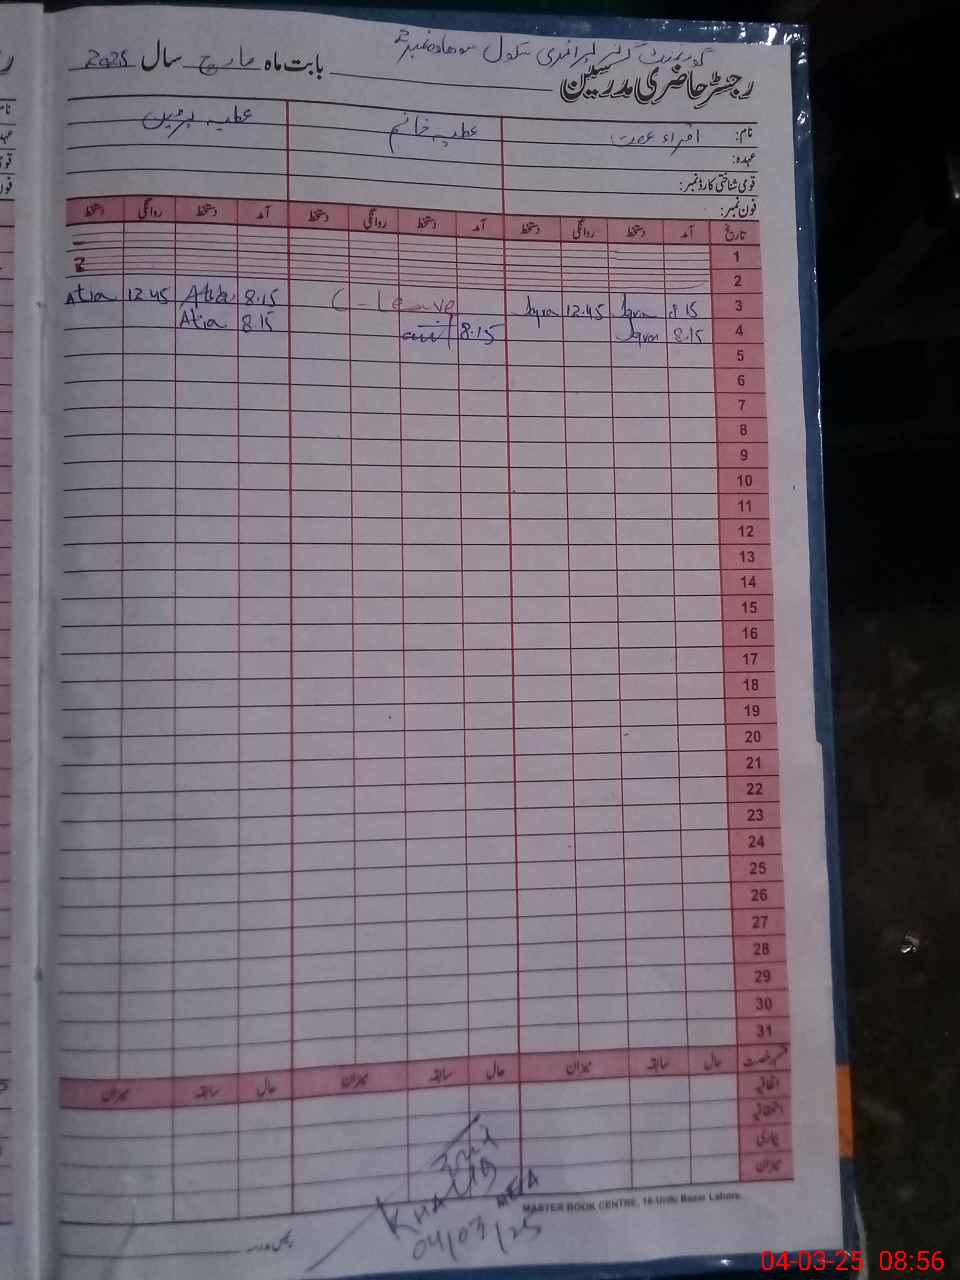 گورنمنٹ گرلز پرائمری سکول نمبر 2
رجسٹر حاضری مدرسین بابت ماہ مارچ سال 2025
نام: اقراء عطیہ خانم عطیہ
عہدہ:
قومی شناختی کارڈ نمبر:
فون نمبر:
تاریخ آمد دستخط روانگی دستخط آمد دستخط روانگی دستخط آمد دستخط روانگی دستخط
1
2
3 8 15 Iqra 12.45 Iqra C - Leave 8.15 Atia 12 45 Atia
4 8.15 Iqra 8.15 8.15 Atia
5
6
7
8
9
10
11
12
13
14
15
16
17
18
19
20
21
22
23
24
25
26
27
28
29
30
31
قسم رخصت حال سابقہ میزان حال سابقہ میزان حال سابقہ میزان
اتفاقیہ
استحقاقیہ
بیماری
میزان
KHALID
MEA
04/03/25
MASTER BOOK CENTRE, 16-Urdu Bazar Lahore.
04-03-25 08:56